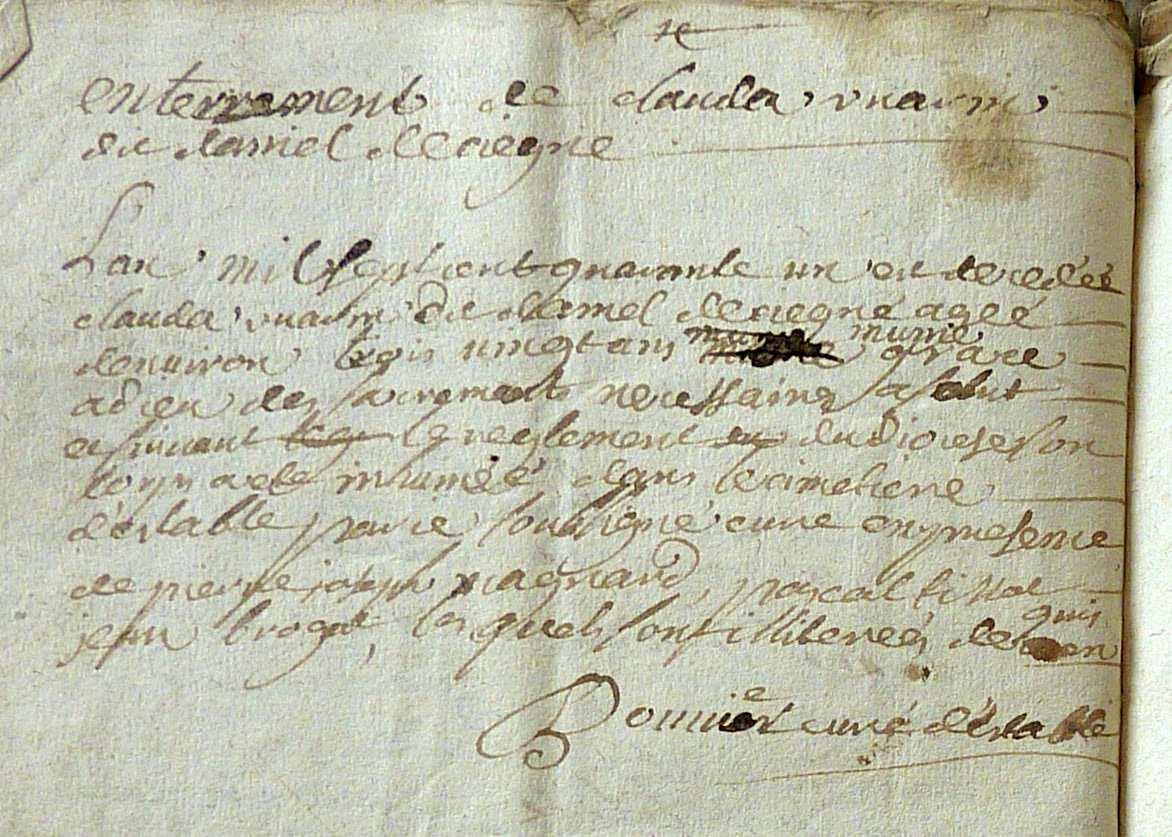 enterrement de clauda vuarin
dit daniel de ciegne
L'an mil sept cent quarante un est decedée
clauda vuarin dit daniel de ciegne agée
denviron trois vingt ans munie grace
a dieu des sacrements necessaires a salut
et suivant le reglement du diocese son
corps a eté inhumée dans le cimetiere
d'estable par ie soussigné curé en presence
de pierre joseph magnard, pascal
jean brogat, lesquels sont illiterées de requis
curé d'estable